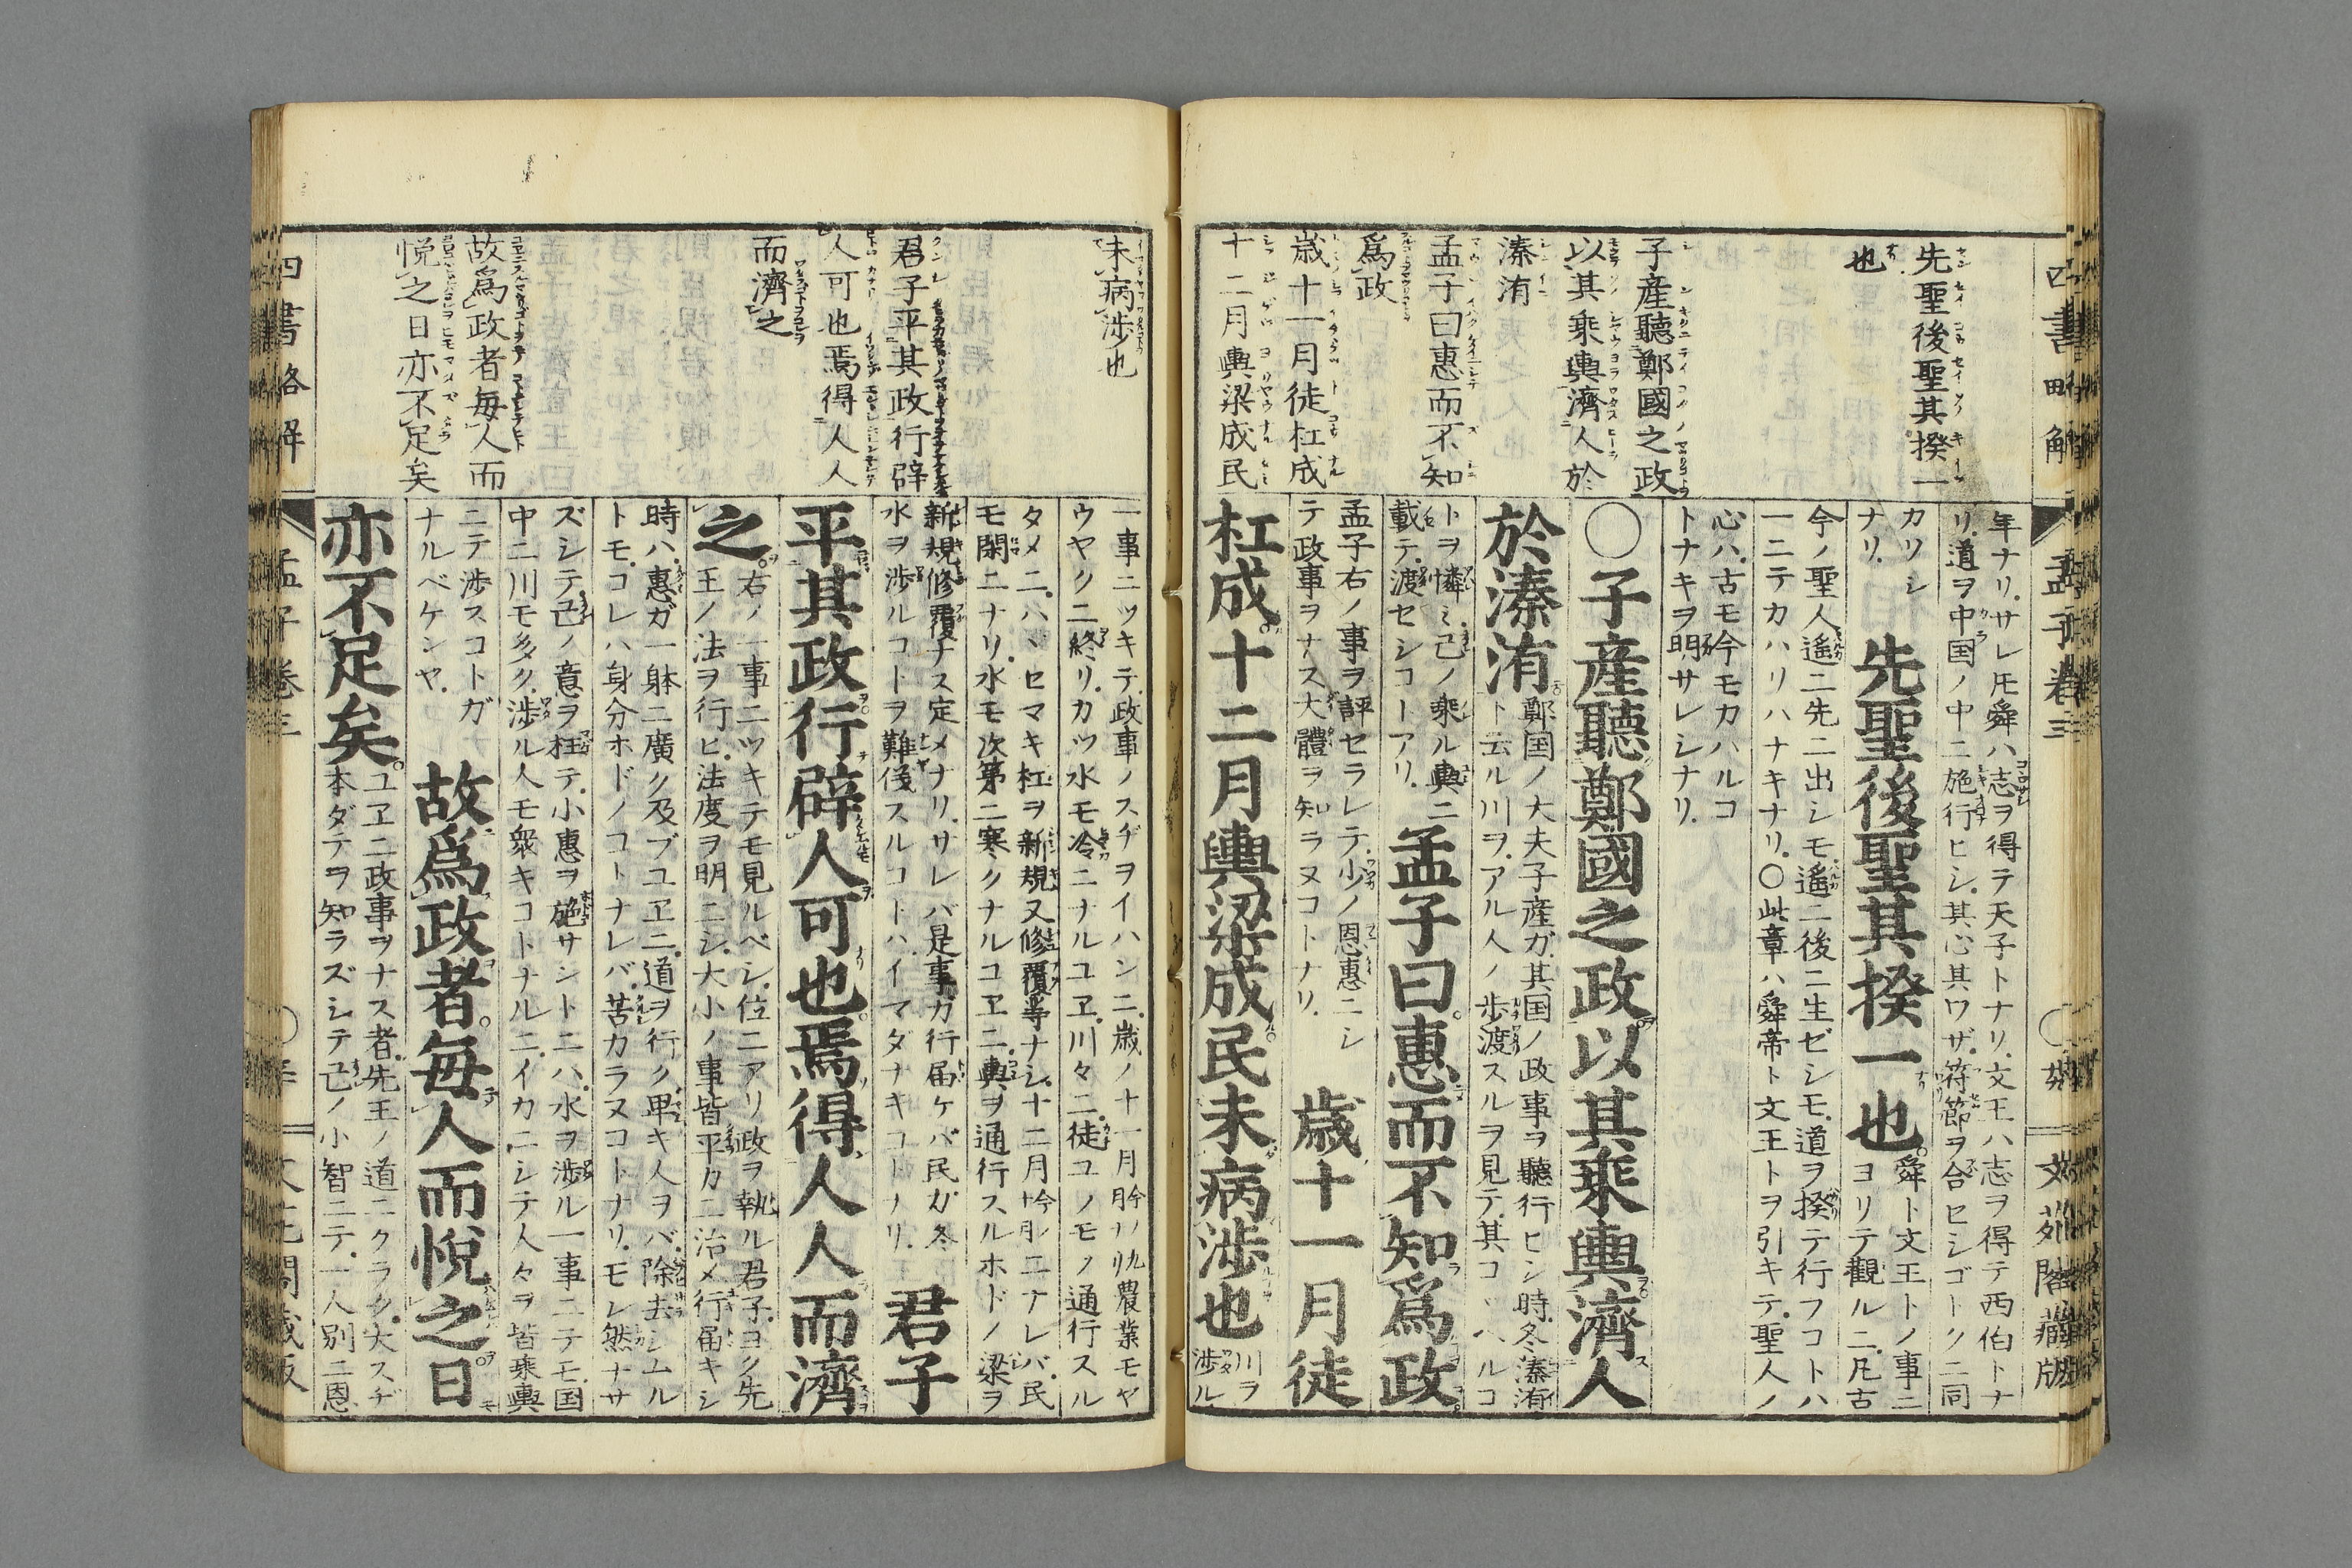 四書略解
孟子卷三
文苑閣藏版
先聖後聖其揆一
也
子產聽鄭國之政
以其乘輿濟人於
溱洧
孟子曰惠而不知
爲政
歳十一月徒杠成
十二月輿梁成民
年ナリ.サレ𪜈舜ハ志ヲ得テ天子トナリ.文王ハ志ヲ得テ西伯トナ
リ.道ヲ中国ノ中ニ施行ヒシ.其心其ワザ.符節ヲ合ヒシゴトクニ同
カリシ
ナリ.
先聖後聖其揆一也
舜ト文王トノ事ニ
ヨリテ觀ルニ.凡古
今ノ聖人遙ニ先ニ出シモ.遙ニ後ニ生ゼシモ.道ヲ揆テ行フコトハ
一ニテカハリハナキナリ.〇此章ハ舜帝ト文王トヲ引キテ.聖人ノ
心ハ.古モ今モカハルコ
トナキヲ明サレシナリ.
〇子產聽鄭國之政以其乘輿濟人
於溱洧
鄭国ノ大夫子産ガ.其国ノ政事ヲ聽行ヒシ時.冬溱洧
ト云ル川ヲ.アル人ノ歩渡スルヲ見テ.其コヾヘルコ
トヲ憐ミ.己ノ乘ル輿ニ
載テ.渡セシコーアリ.
孟子曰惠而不知爲政
孟子右ノ事ヲ評セラレテ.少ノ恩惠ニシ
テ政事ヲナス大體ヲ知ラヌコトナリ.
歲十一月徒
杠成十二月輿梁成民未病渉也
川ヲ
渉ル
未病渉也
君子平其政行辟
人可也焉得人人
而濟之
故爲政者毎人而
悦之日亦不足矣
一事ニツキテ.政事ノスヂヲイハンニ.歳ノ十一月ハ農業モヤ
ウヤクニ終リ.カツ水モ冷ニナルユヱ.川々ニ.徒ユノモノ通行スル
タメニ.ハヾセマキ杠ヲ新規又修覆等ナシ.十二月ニナレバ.民
モ閑ニナリ.水モ次第ニ寒クナルコヱニ.輿ヲ通行スルホドノ梁ヲ
新規修覆ナス定メナリ.サレバ是事ガ行届ケバ民ガ冬
水ヲ渉ルコトヲ難儀スルコトハイマダナキコトナリ.
君子
平其政行辟人可也焉得人人而濟
之
右ノ一事ニツキテモ見ルベシ.位ニアリ政ヲ執ル君子.ヨク先
王ノ法ヲ行ヒ.法度ヲ明ニシ.大小ノ事皆平カニ治メ行届キシ
時ハ.惠ガ一躰ニ廣ク及ブユヱニ.道ヲ行ク.卑キ人ヲバ.除去シムル
トモ.コレハ身分ホドノコトナレバ.苦カラヌコトナリ.モシ然ナサ
ズシテ.己ノ意ヲ枉テ.小惠ヲ施サシトニハ.水ヲ渉ル一事ニテモ.国
中ニ川モ多ク.渉ル人モ衆キコトナルニ.イカニシテ人々ヲ皆乘輿
ニテ渉スコトガ
ナルベケンヤ.
故爲政者毎人而悦之日
亦不足矣
ユヱニ政事ヲナス者.先王ノ道ニクラク.大スヂ
本ダテヲ知ラズシテ己ノ小智ニテ.一人別ニ恩
四書略解
孟子卷三